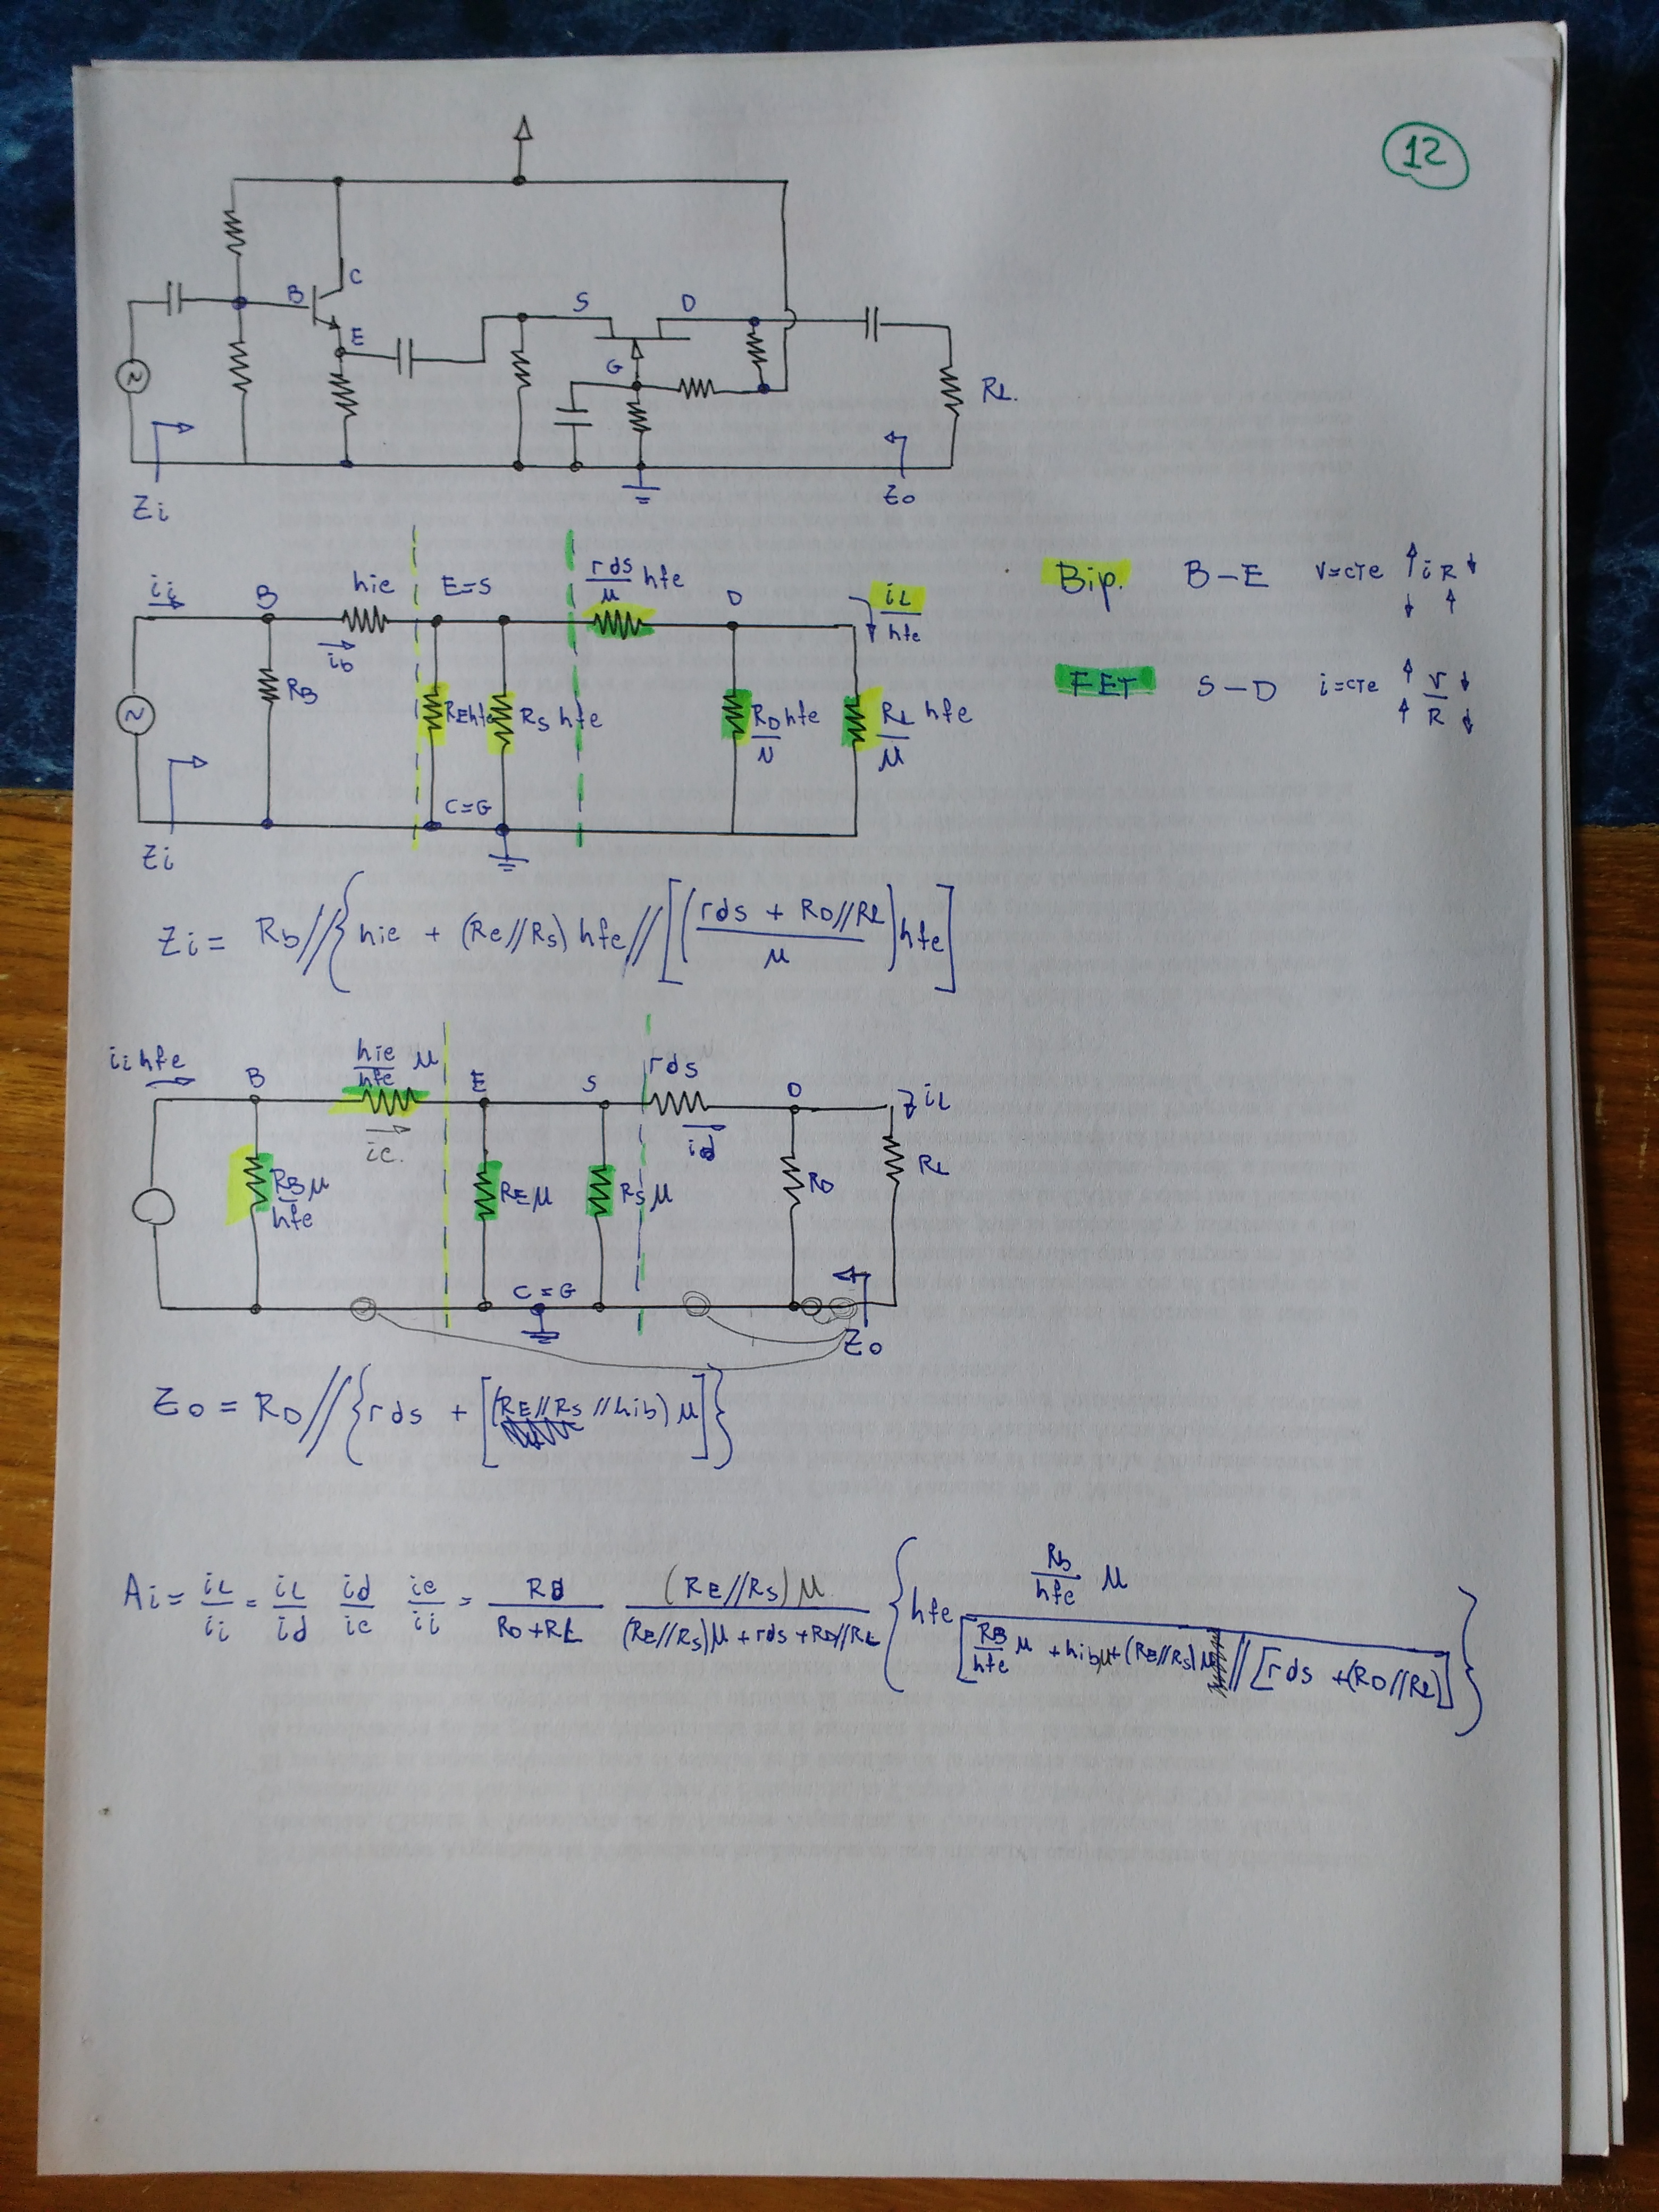 12
C
B
E
S
D
G
RL.
Zi
Zo
ii
B
hie
E=S
rds/μ hfe
D
iL/hfe
ib
RB
REhfe
RS hfe
RD/μ hfe
RL/μ hfe
C=G
Zi
Bip. B-E v=cte ↑ i R ↓ ↓ ↑
FET S-D i=cte ↑ V ↓ ↑ R ↓
Zi = Rb//{hie + (Re//Rs) hfe//[(rds + RD//RL / μ) hfe]
ii hfe
B
hie/hfe μ
E
S
rds
D
iL
ic.
id
RB/hfe μ
REμ
RSμ
RD
RL
C=G
Zo
Zo = RD//{rds + [(RE//RS //hib) μ]}
Ai = iL/ii = iL/id id/ie ie/ii = RD/(RD+RL) (RE//RS) μ/((RE//RS)μ + rds + RD//RL {hfe Rb/hfe μ / [RB/hfe μ + hibμ+(RE//RS)μ//[rds +(RD//RL)]}